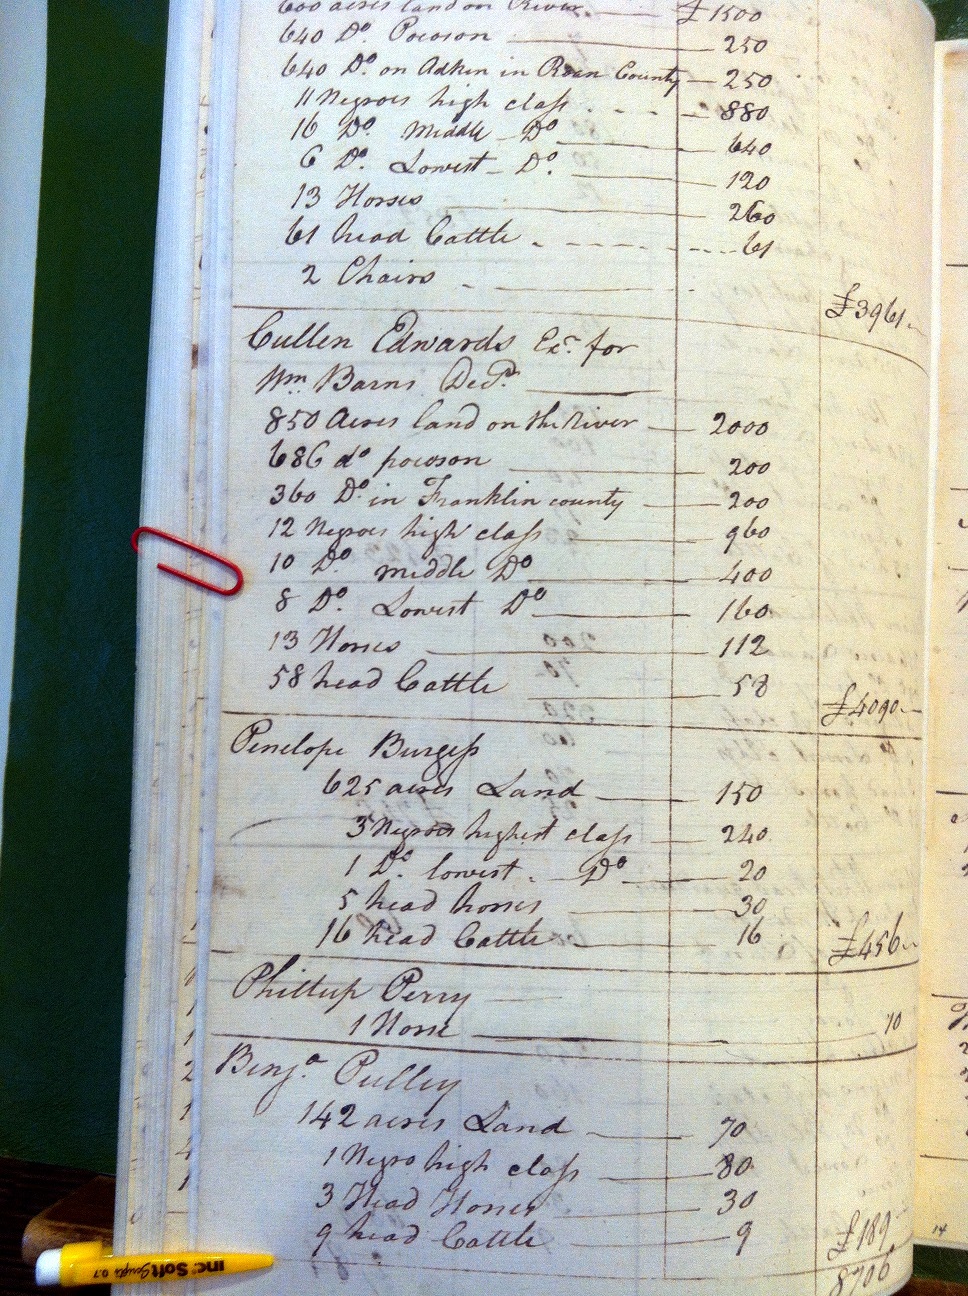 600 acres land on River £1500
640 Do. Pocoson 250
640 Do. on Adkin in Roan County 250
11 Negroes high class 880
16 Do. Middle Do 640
6 Do. Lowest Do. 120
13 Horses 260
61 head Cattle 61
2 Chairs
£3961
Cullen Edwards Exr. for
Wm. Barns Decd.
850 Acres land on the River 2000
686 do pocoson 200
360 Do. in Franklin county 200
12 Negroes high class 960
10 Do. middle Do 400
8 Do. Lowest Do 160
13 Horses 112
58 head Cattle 58
£4090
Penelope Burgess
625 acres Land 150
3 Negroes highest class 240
1 Do. lowest Do 20
5 head horses 30
16 head Cattle 16
£456
Phillup Perry
1 Horse 10
Benja. Pulley
142 acres Land 70
1 Negro high class 80
3 Head Horses 30
9 head Cattle 9
£189
8706
14
inc. Soft Scripts 0.7